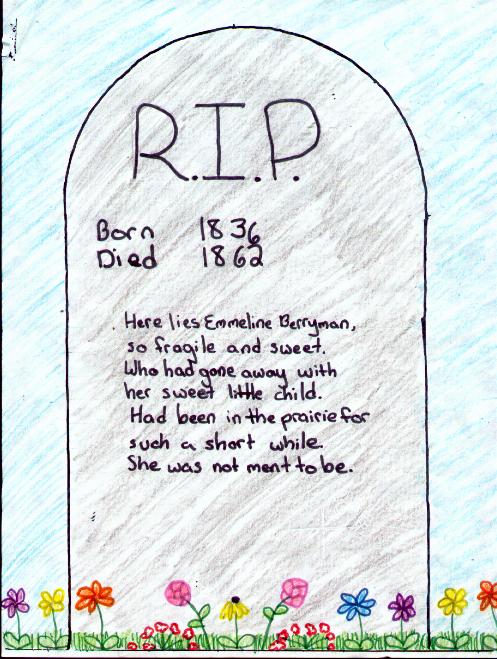 R.I.P.
Born 1836
Died 1862
Here lies Emmeline Berryman,
so fragile and sweet.
Who had gone away with
her sweet little child.
Had been in the prairie for
such a short while.
She was not ment to be.